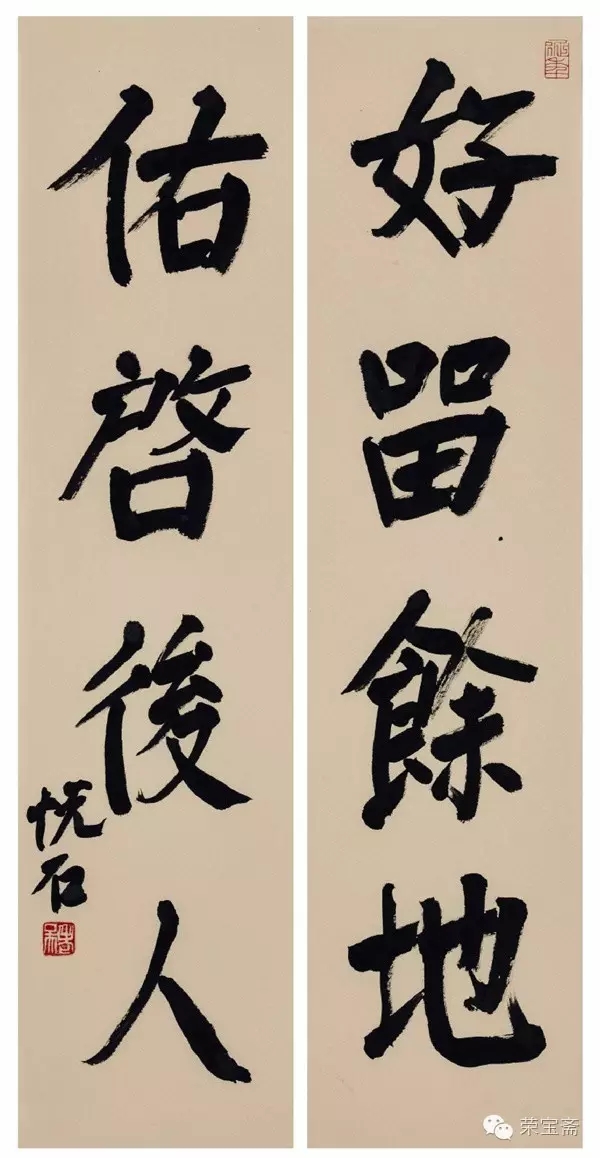 好留餘地
佑啓後人
悦石
荣宝斋